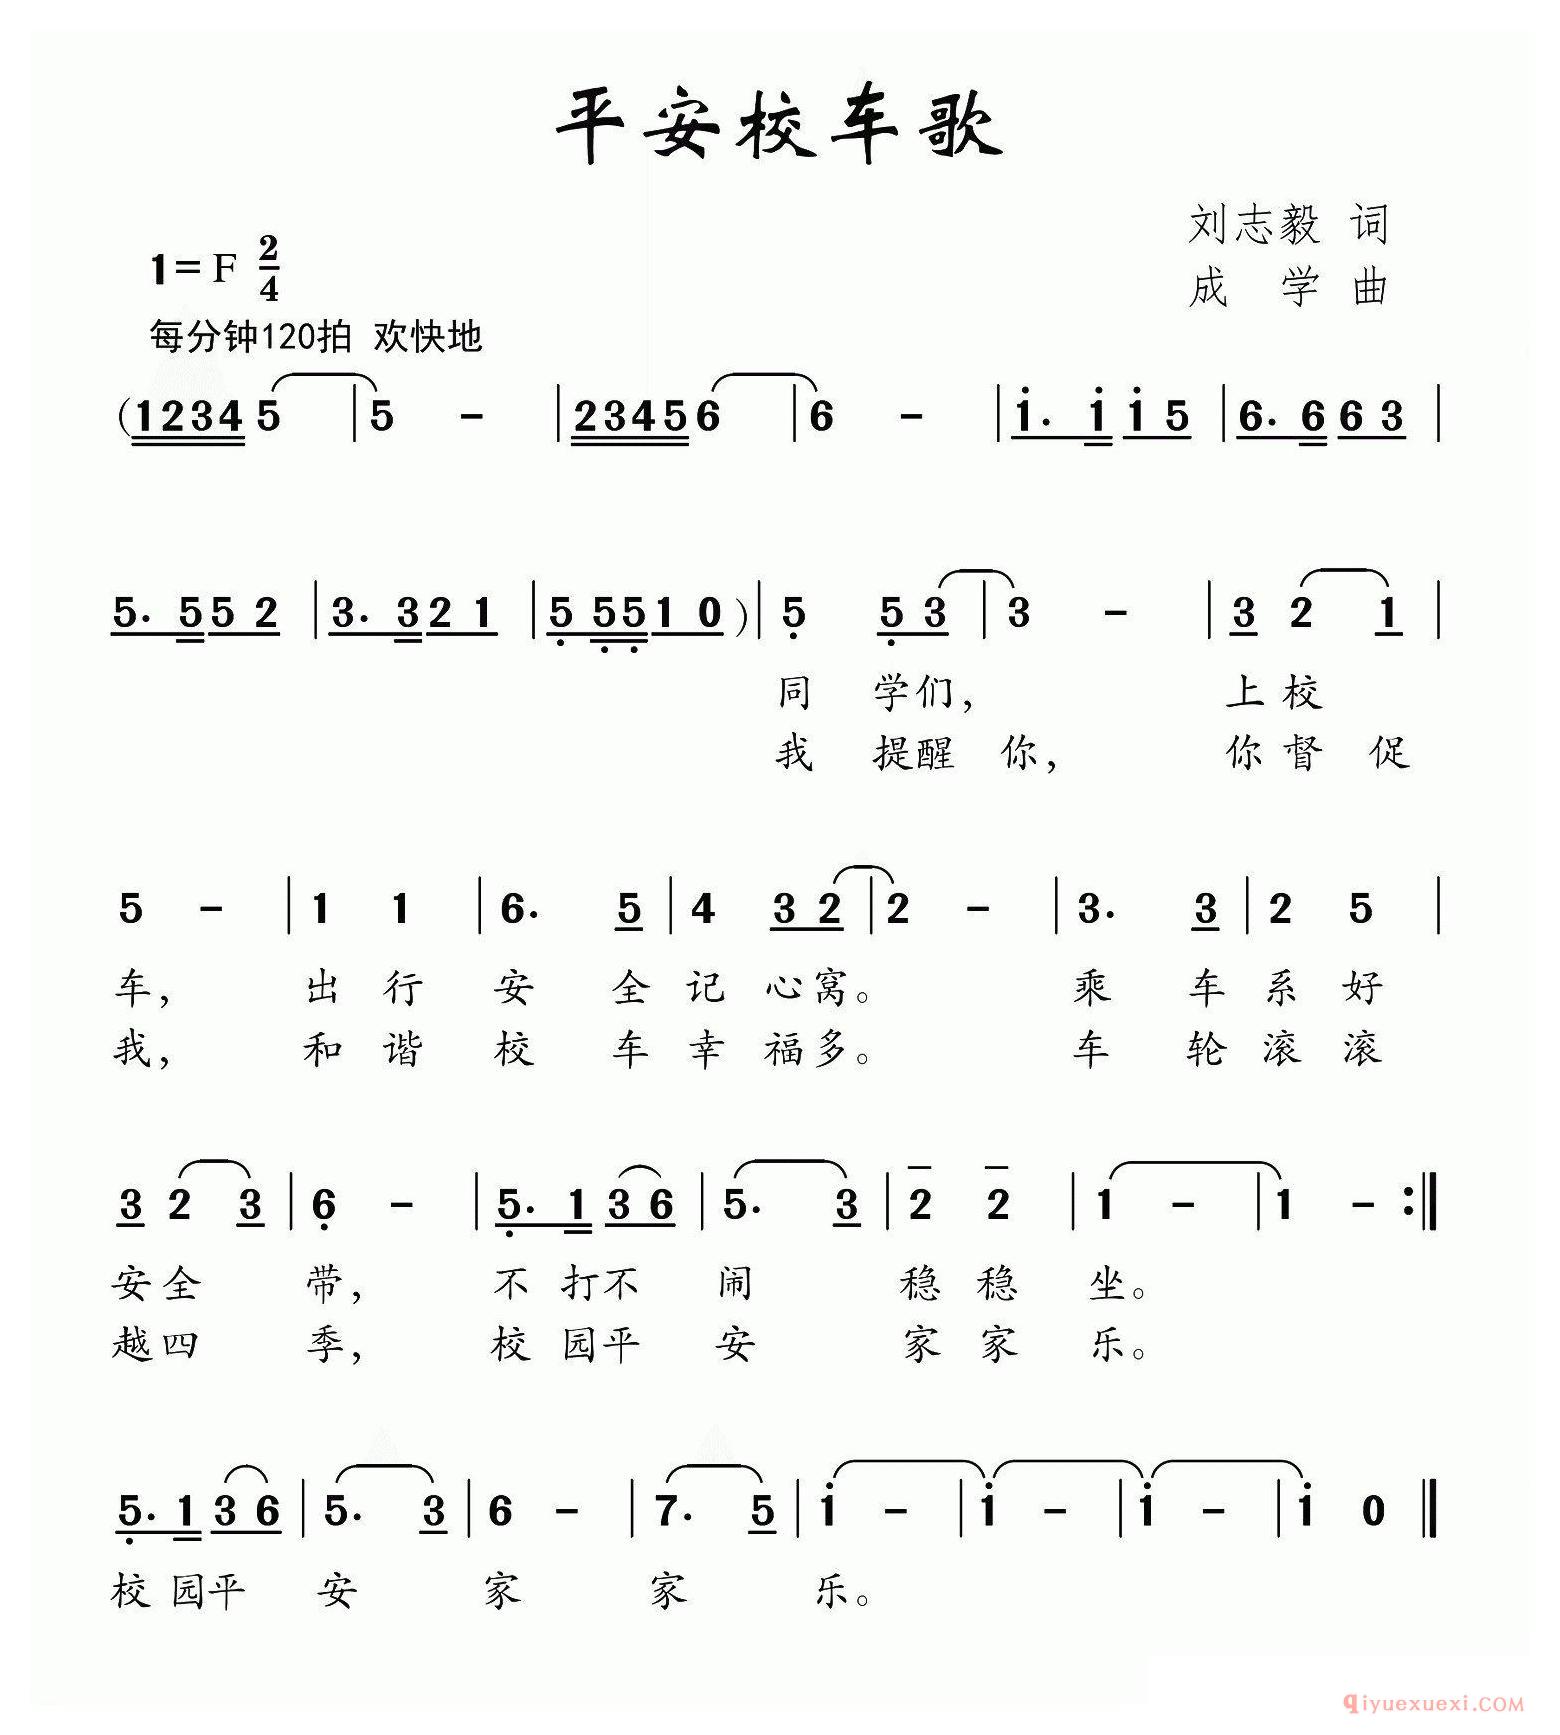 平安校车歌
刘志毅 词
1= F 2/4
成 学 曲
每分钟120拍 欢快地
(1234 5 | 5 - | 2345 6 | 6 - | i. i i 5 | 6. 6 6 3 |
5. 5 5 2 | 3. 3 2 1 | 5 5 5 1 0 ) | 5 5 3 | 3 - | 3 2 1 |
同 学们, 上 校
我 提醒 你, 你 督 促
5 - | 1 1 | 6. 5 | 4 3 2 | 2 - | 3. 3 | 2 5 |
车, 出 行 安 全 记 心窝。 乘 车 系 好
我, 和 谐 校 车 幸 福多。 车 轮 滚 滚
3 2 3 | 6 - | 5. 1 3 6 | 5. 3 | 2 2 | 1 - | 1 - :||
安全 带, 不 打不 闹 稳 稳 坐。
越四 季, 校 园平 安 家 家 乐。
5. 1 3 6 | 5. 3 | 6 - | 7. 5 | i - | i - | i - | i 0 ||
校 园平 安 家 家 乐。
qiyuexuexi.COM